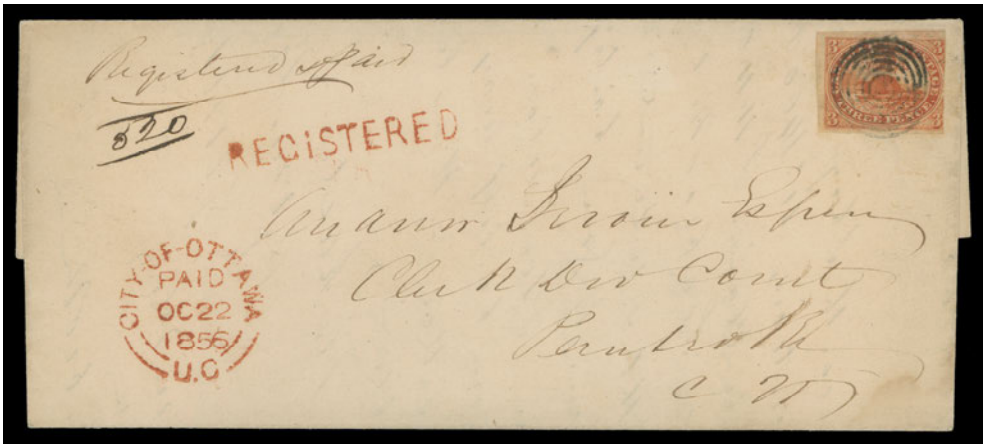 Registered & Paid
520
REGISTERED
3 3
THREE PENCE
3 3
Andrew Irwin Esquire
Clerk Div Court
Pembroke
C W
CITY-OF-OTTAWA
PAID
OC 22
1856
U.C